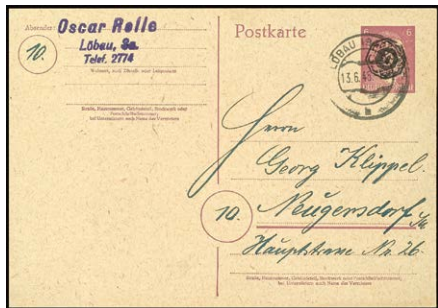 Absender: Oscar Relle
Löbau, Sa.
Telef. 2774
10.
Wohnort, auch Zustell- oder Leitpostamt
Straße, Hausnummer, Gebäudeteil, Stockwerk oder
Postschließfachnummer;
bei Untermietern auch Name des Vermieters
Postkarte
6
6
LÖBAU
13.6.45
b
Herrn
Georg Klippel.
10.
Neugersdorf
Hauptstrasse No. 26.
Straße, Hausnummer, Gebäudeteil, Stockwerk oder Postschließfachnummer;
bei Untermietern auch Name des Vermieters